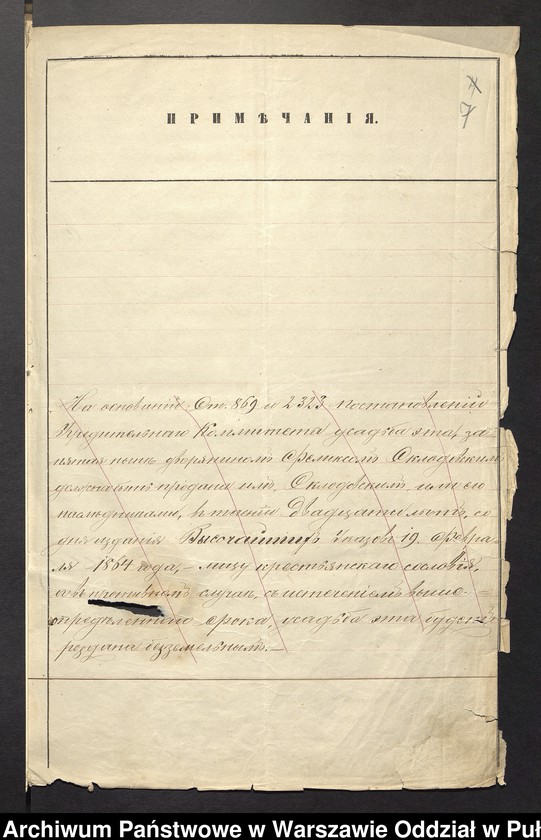 7
ПРИМѢЧАНІЯ.
На основаніи Ст. 869 и 2323 постановленій
Учредительнаго Коммитета усадьба эта, за-
нятая нынѣ дворяниномъ Феликсомъ Склодовскимъ
должна быть продана имъ, Склодовскимъ, или его
наслѣдниками, въ теченіи двадцати лѣтъ, со
дня изданія Высочайшихъ Указовъ 19 Февра-
ля 1864 года, — лицу крестьянскаго сословія,
а въ противномъ случаѣ, съ истеченіемъ выше-
опредѣленнаго срока, усадьба эта будетъ
роздана безземельнымъ. —
Archiwum Państwowe w Warszawie Oddział w Puł